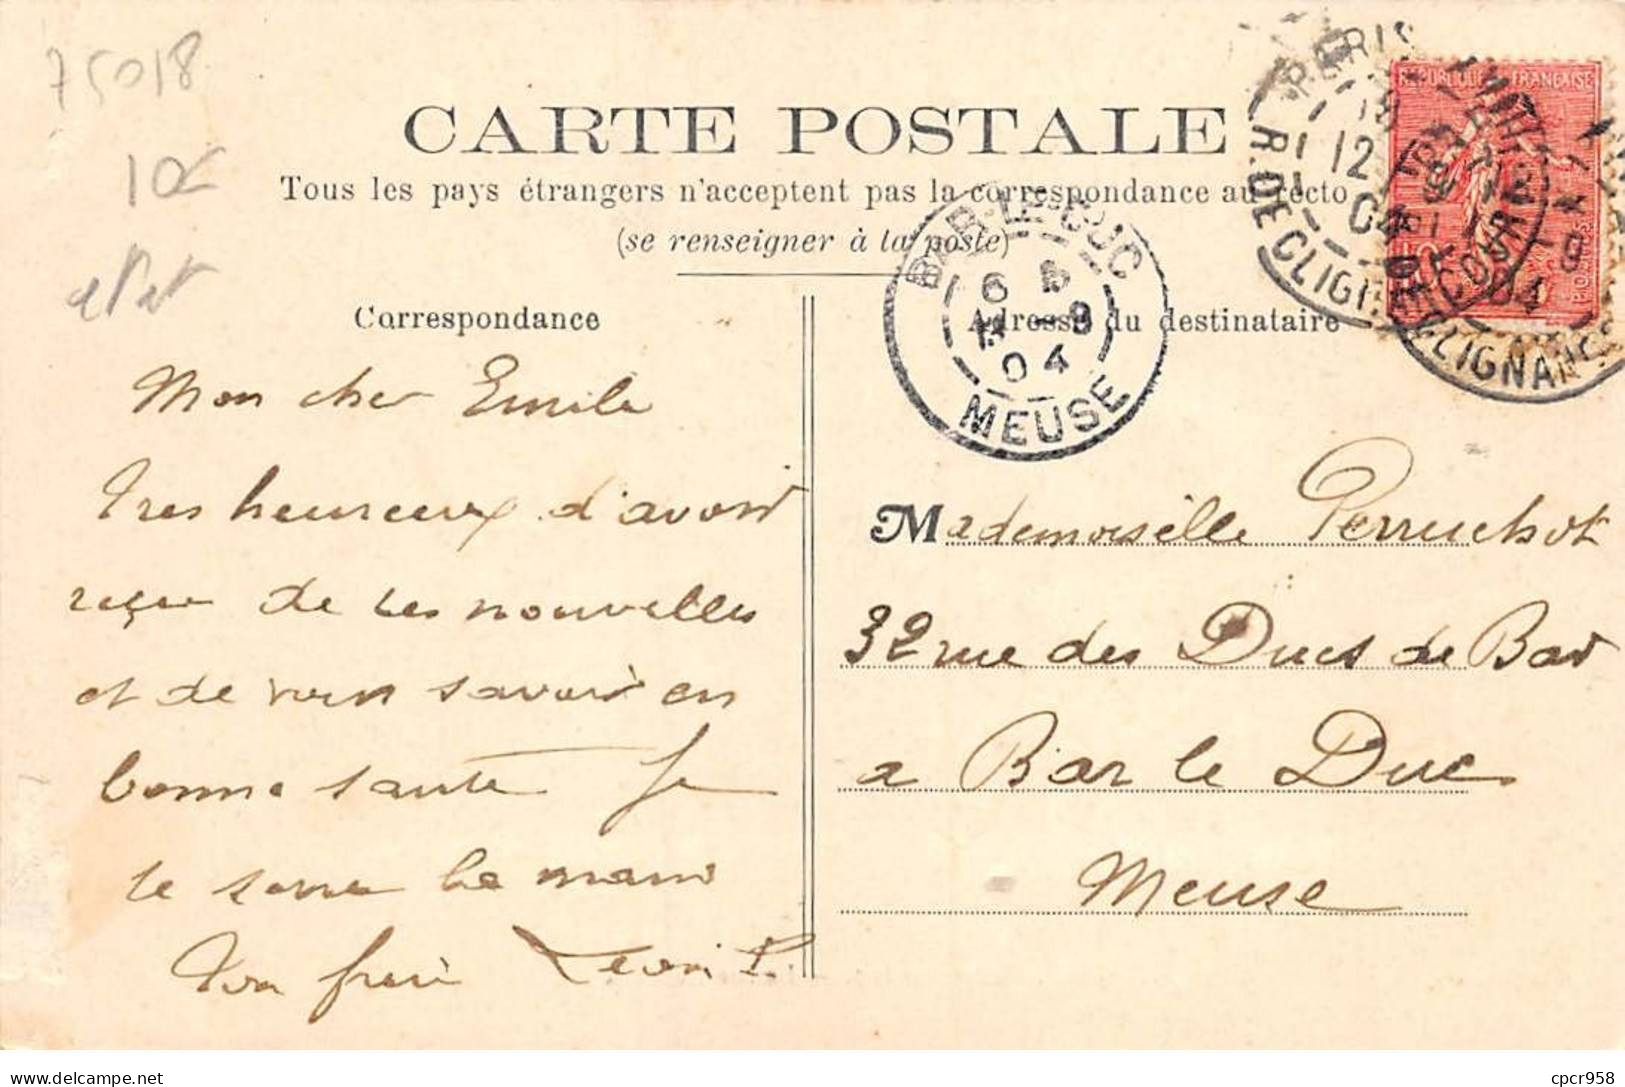 75018
10€
CARTE POSTALE
Tous les pays étrangers n'acceptent pas la correspondance au recto
(se renseigner à la poste)
RÉPUBLIQUE FRANÇAISE
PARIS
12
04
R. DE CLIGNANCOURT
BAR-LE-DUC
6
04
MEUSE
Correspondance
Mon cher Emile
Tres heureux d'avoir
reçu de tes nouvelles
et de vous savoir en
bonne santé Je
te serre la main
Ton frère Leon P.
Adresse du destinataire
Mademoiselle Perruchot
32 rue des Ducs de Bar
a Bar le Duc
Meuse
cpcr958